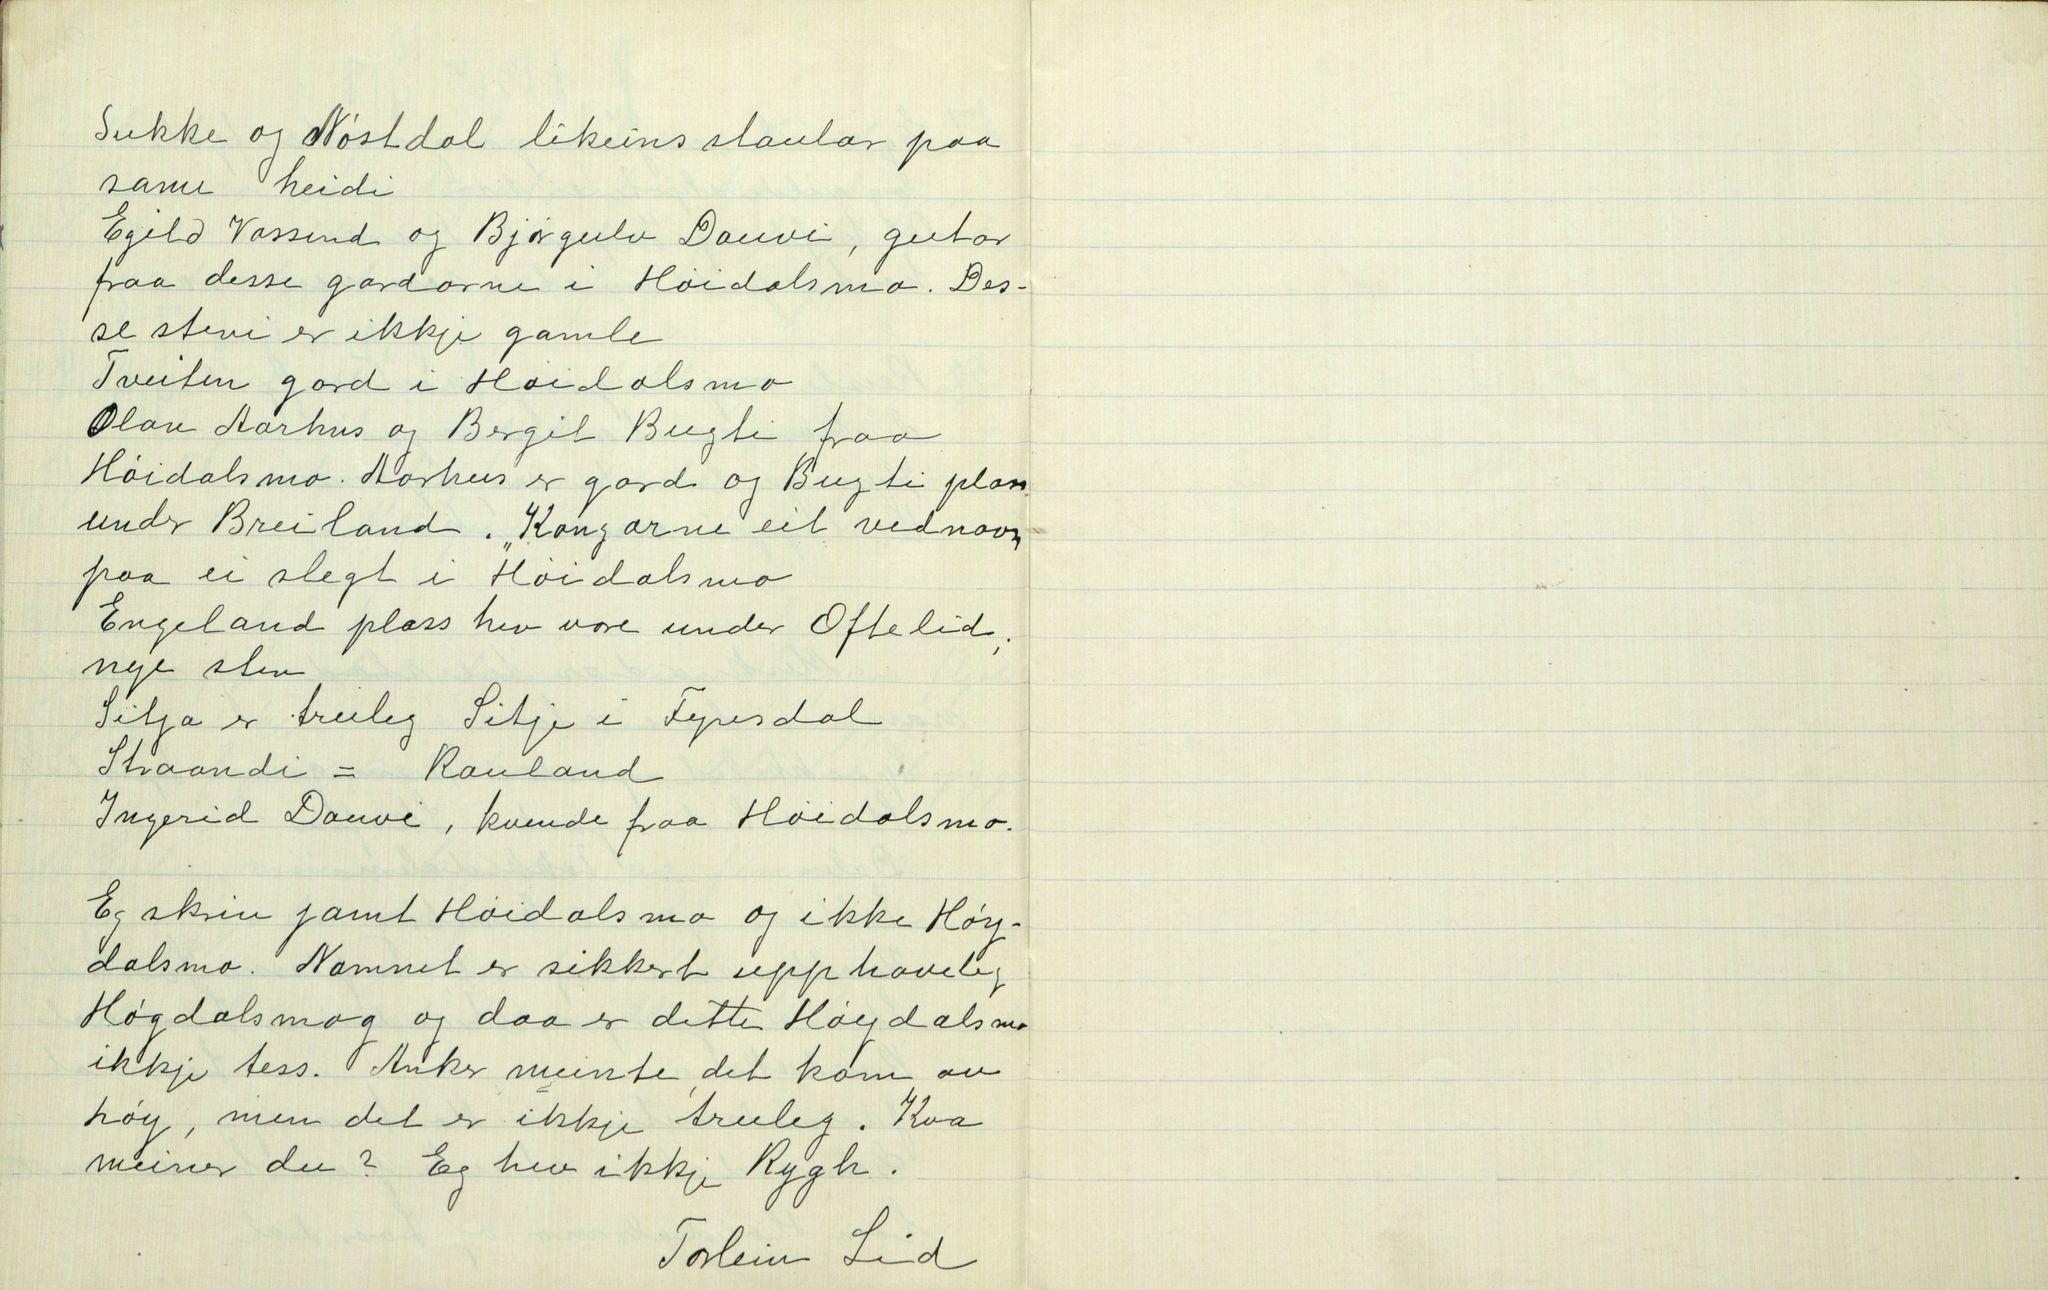 Sukke og Nóstdal likeins staular paa
same heidi
Egild Vassend og Bjørgulv Dauvi, gutar
fraa desse gardarne i Hóidalsmo. Des-
se stevi er ikkje gamle
Tveiten gard i Hóidalsmo
Olav Aarhus og Bergit Bugti fraa
Hóidalsmo. Aarhus er gard og Bugti plass
under Breiland. „Kongarne eit vednavn
paa ei slegt i Hóidalsmo
Engeland plass hev vore under Oftelid;
nye stev
Sitja er truleg Sitje i Fyresdal
Straandi = Rauland
Ingerid Dauvi, kvende fraa Hóidalsmo.
Eg skriv jamt Hóidalsmo og ikke Hóy-
dalsmo. Namnet er sikkert upphaveleg
Hógdalsmog og daa er dette Hóydalsmo
ikkje tess. Anker meinte det kom av
hóy, men det er ikkje truleg. Kva
meiner du? Eg hev ikkje Rygh.
Torleiv Lid